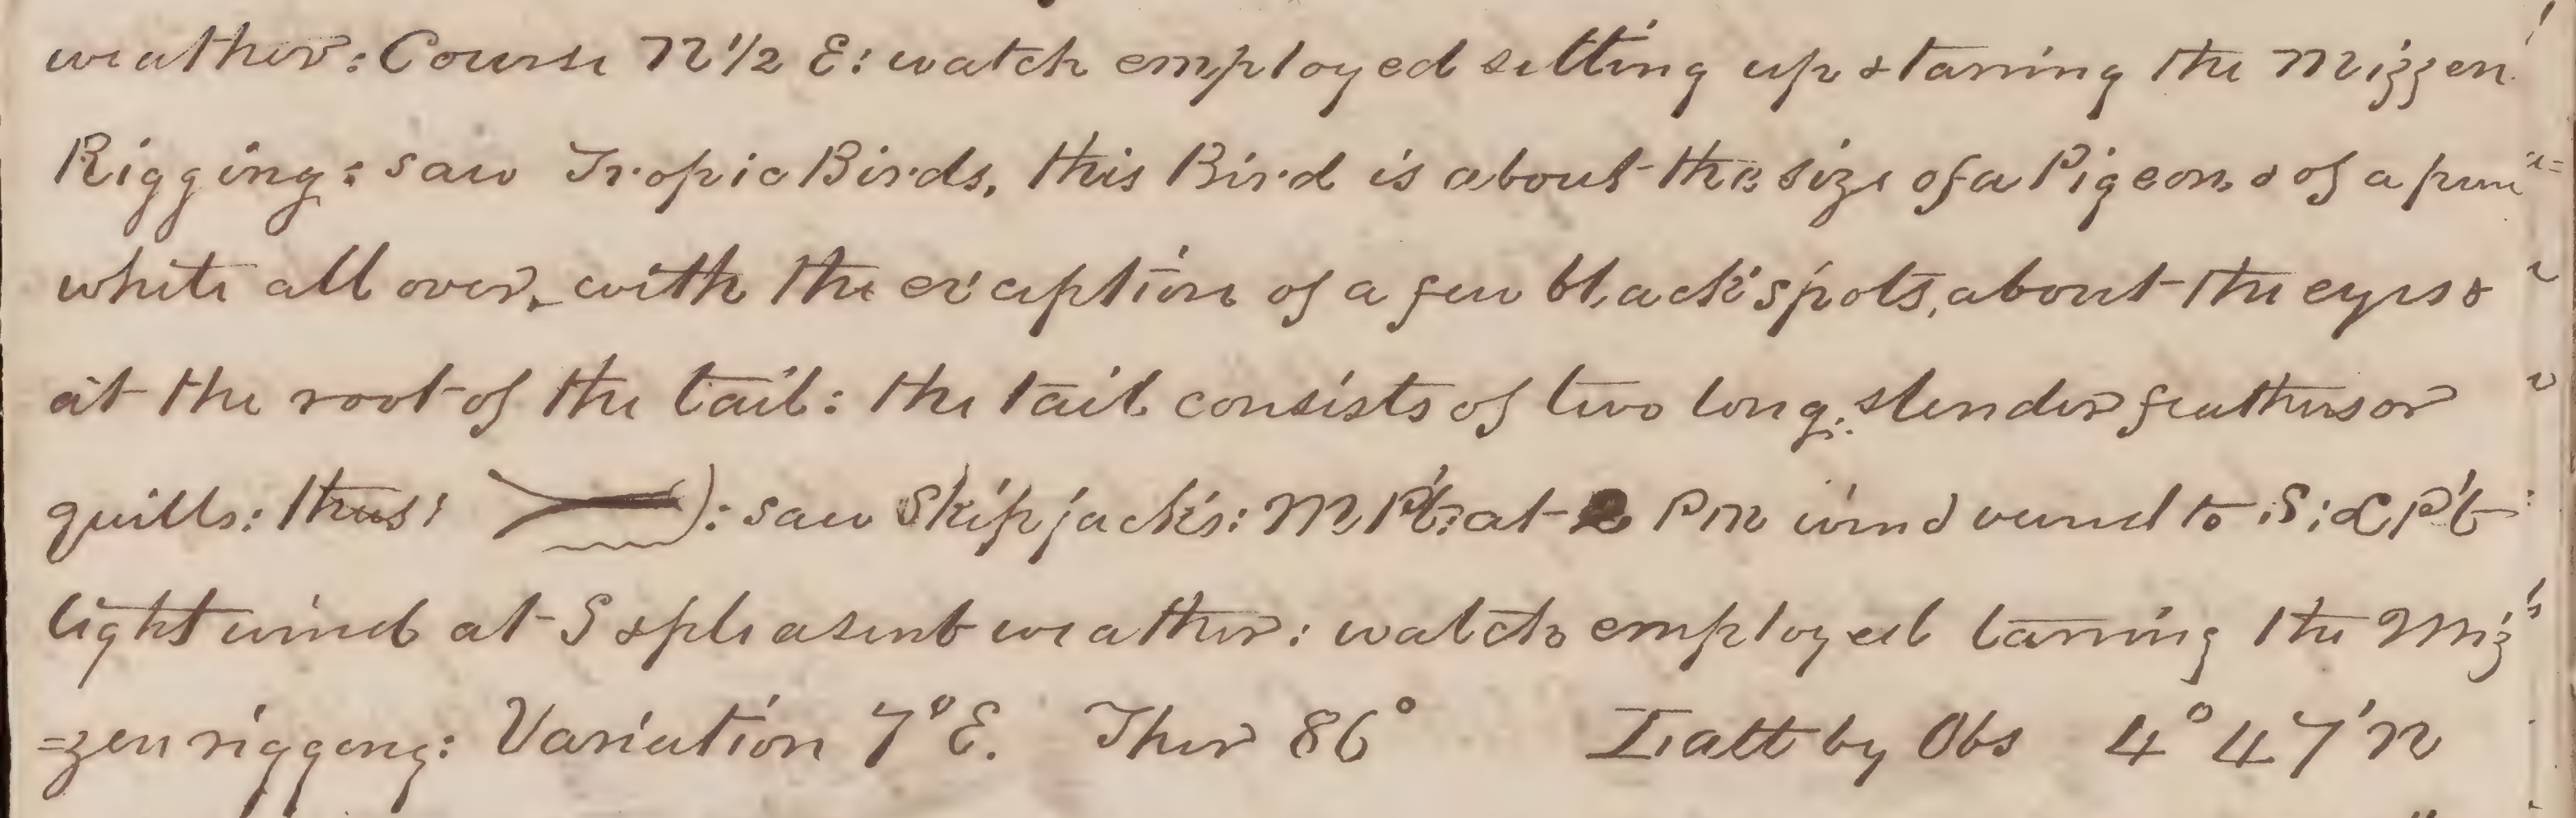 weather: Course N 1/2 E: watch employed setting up & tarring the Mizzen
Rigging: saw Tropic Birds, this Bird is about the size of a Pigeon & of a pure
white all over, with the exception of a few black spots, about the eyes &
at the root of the tail: the tail consists of two long: slender feathers or
quills: thus: ): saw Skipjacks: M Pt: at 2 PM wind veered to S: L Pt
light wind at S & pleasent weather: watch employed tarring the Miz
=zen riggeng: Variation 7° E. Ther 86° Latt by Obs 4° 47' N